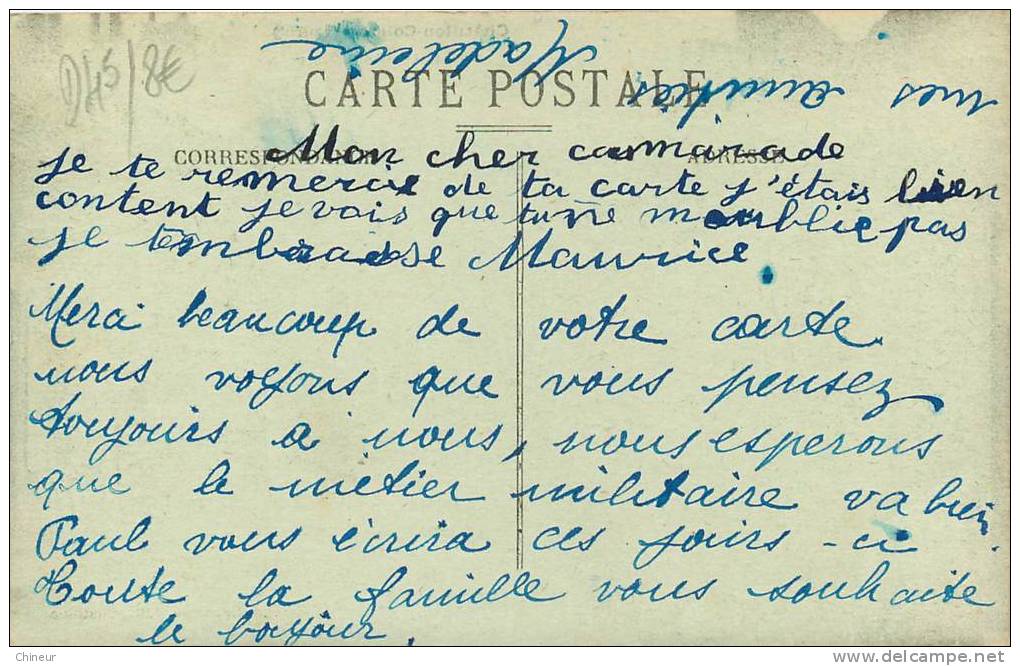 D45/8€
mes amitiés
Madeleine
CARTE POSTALE
CORRESPONDANCE
ADRESSE
Mon cher camarade
je te remercie de ta carte j'étais bien
content je vois que tu ne m'oublie pas
je t'embrasse Maurice
Merci beaucoup de votre carte
nous voyons que vous pensez
toujours à nous, nous esperons
que le métier militaire va bien.
Paul vous écrira ces jours-ci
Toute la famille vous souhaite
le bonjour.
Chineur
www.delcampe.net